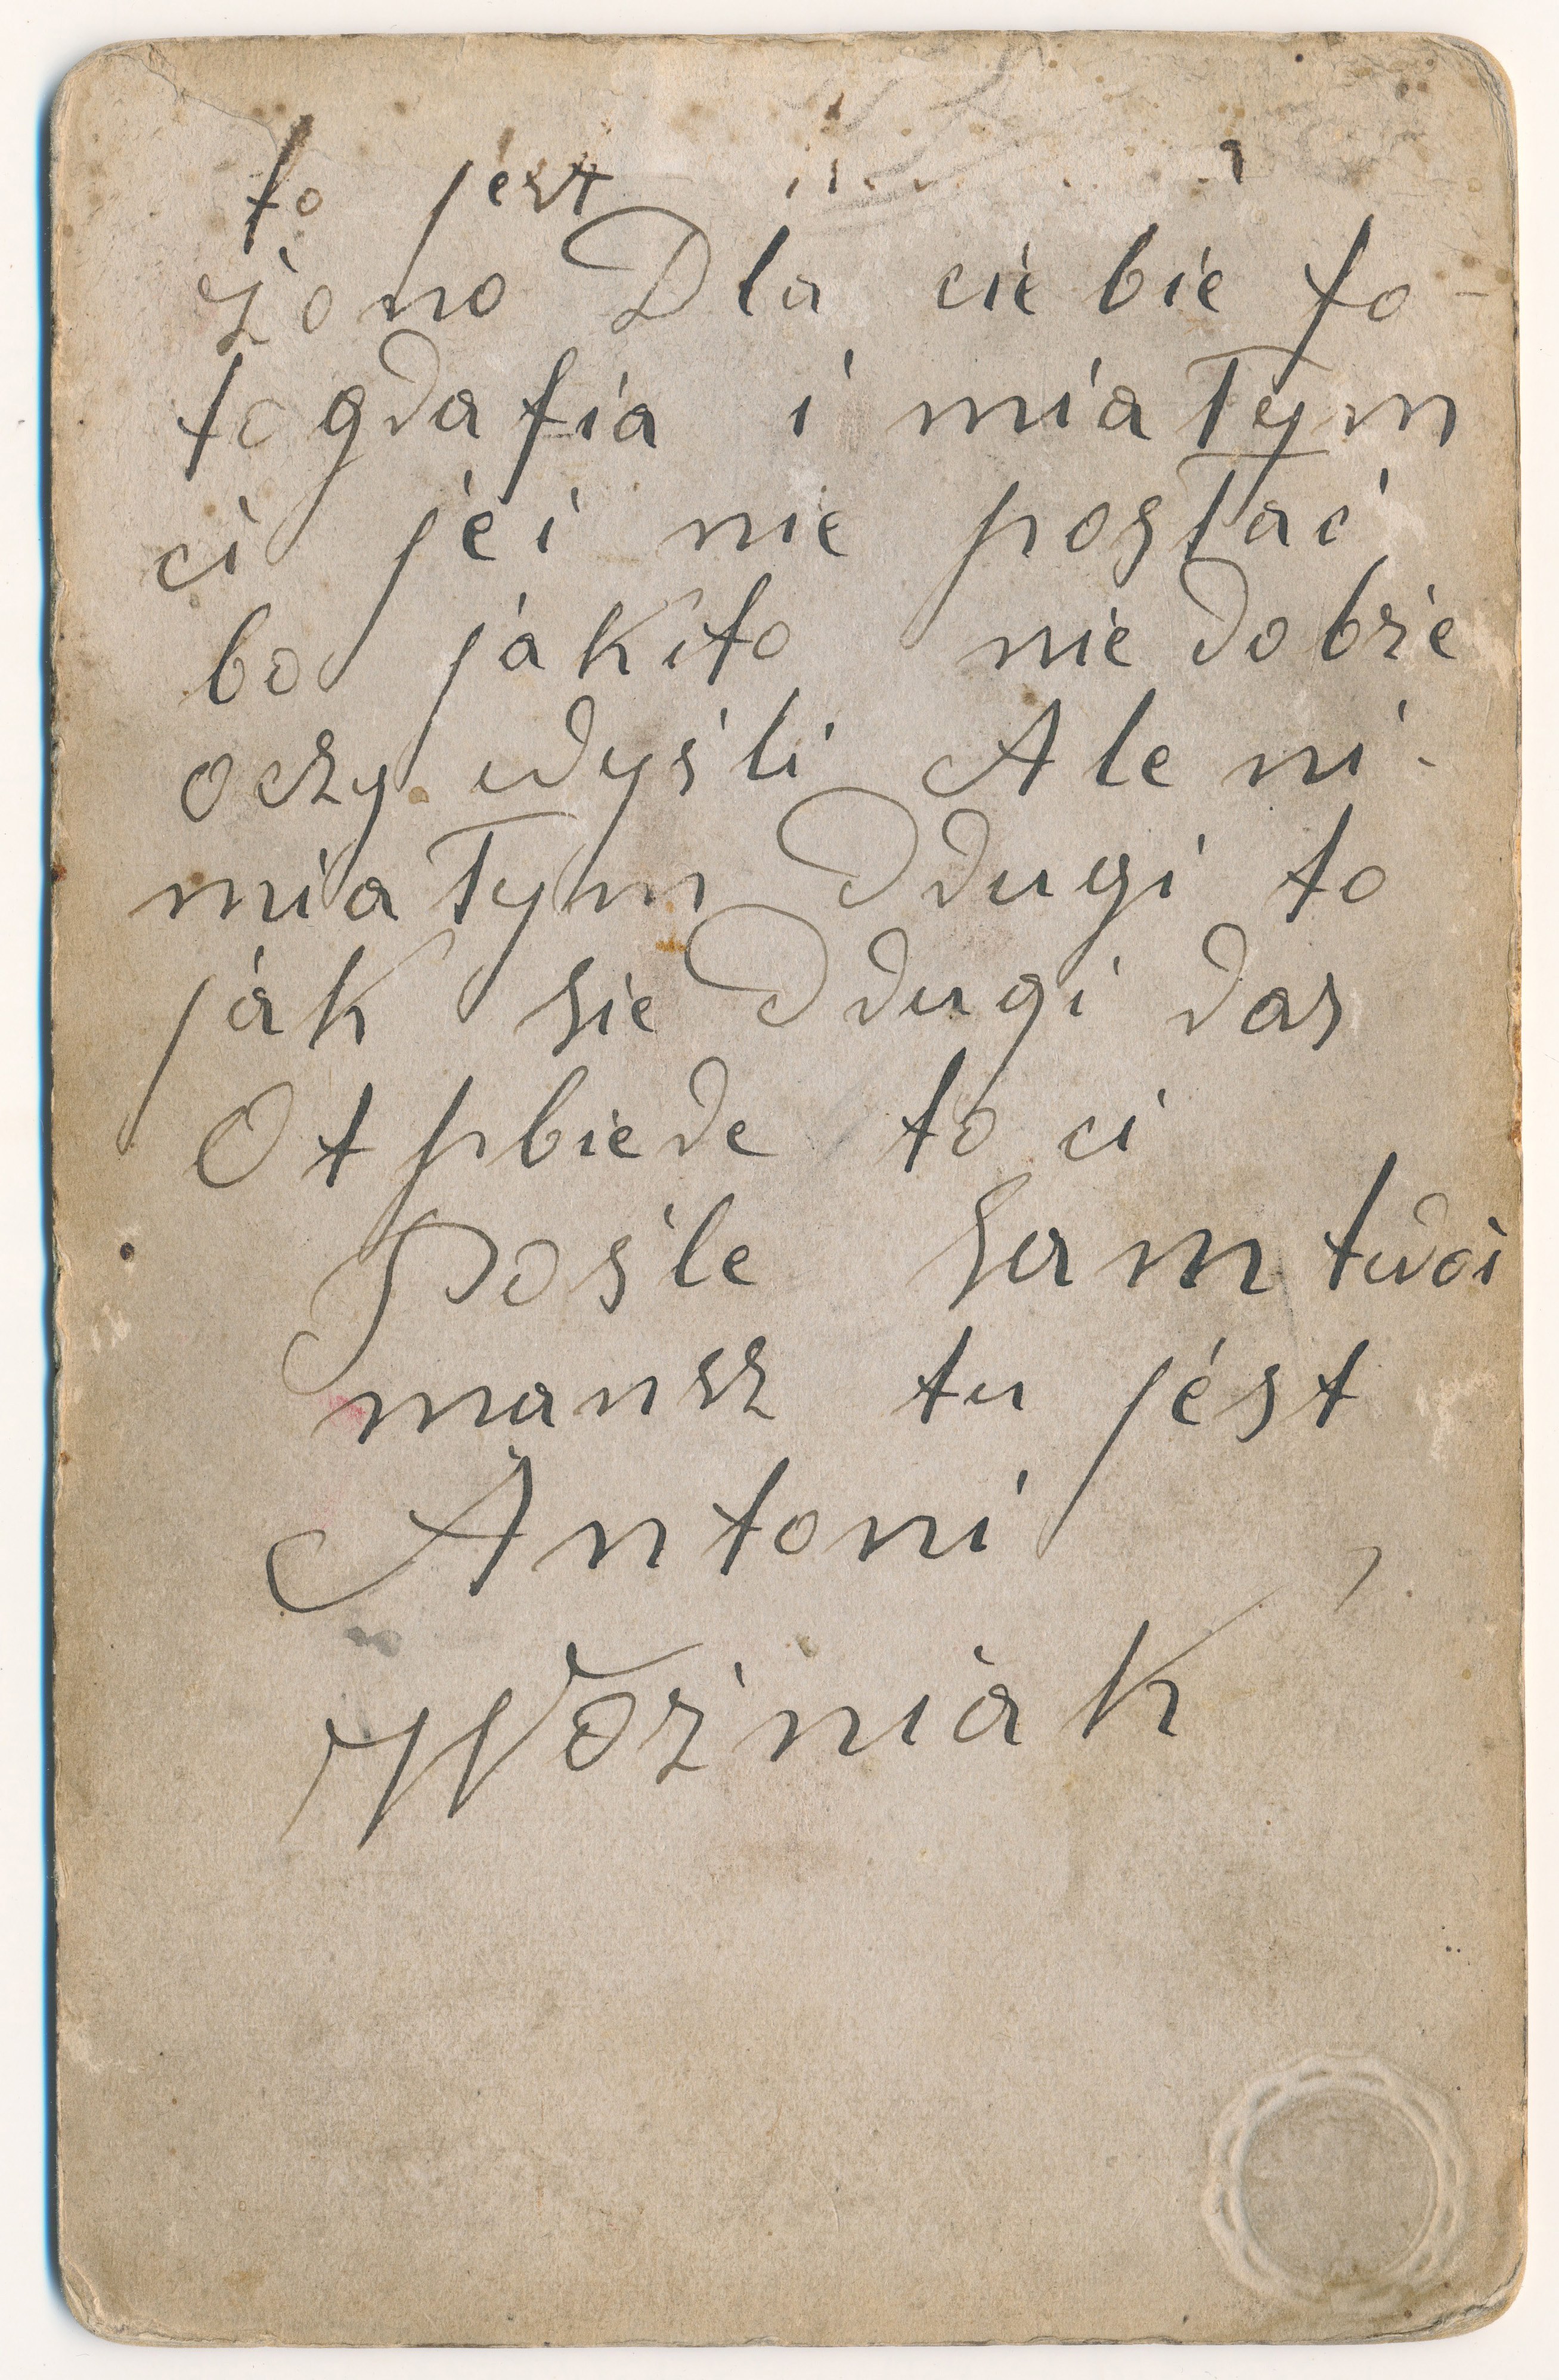 to jest
żono Dla ciebie fo-
togdafia i miałym
ci jei nie posłać
bo jakito niedobrze
oczy wdyśli Ale ni-
miałym Ddugi to
jak sie Ddugi das
Otpbiede to ci
Pośle Sam twoi
mansz tu jest
Antoni
Woźniak